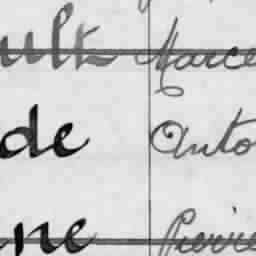 ult Marce
de Anto
ne Pierre